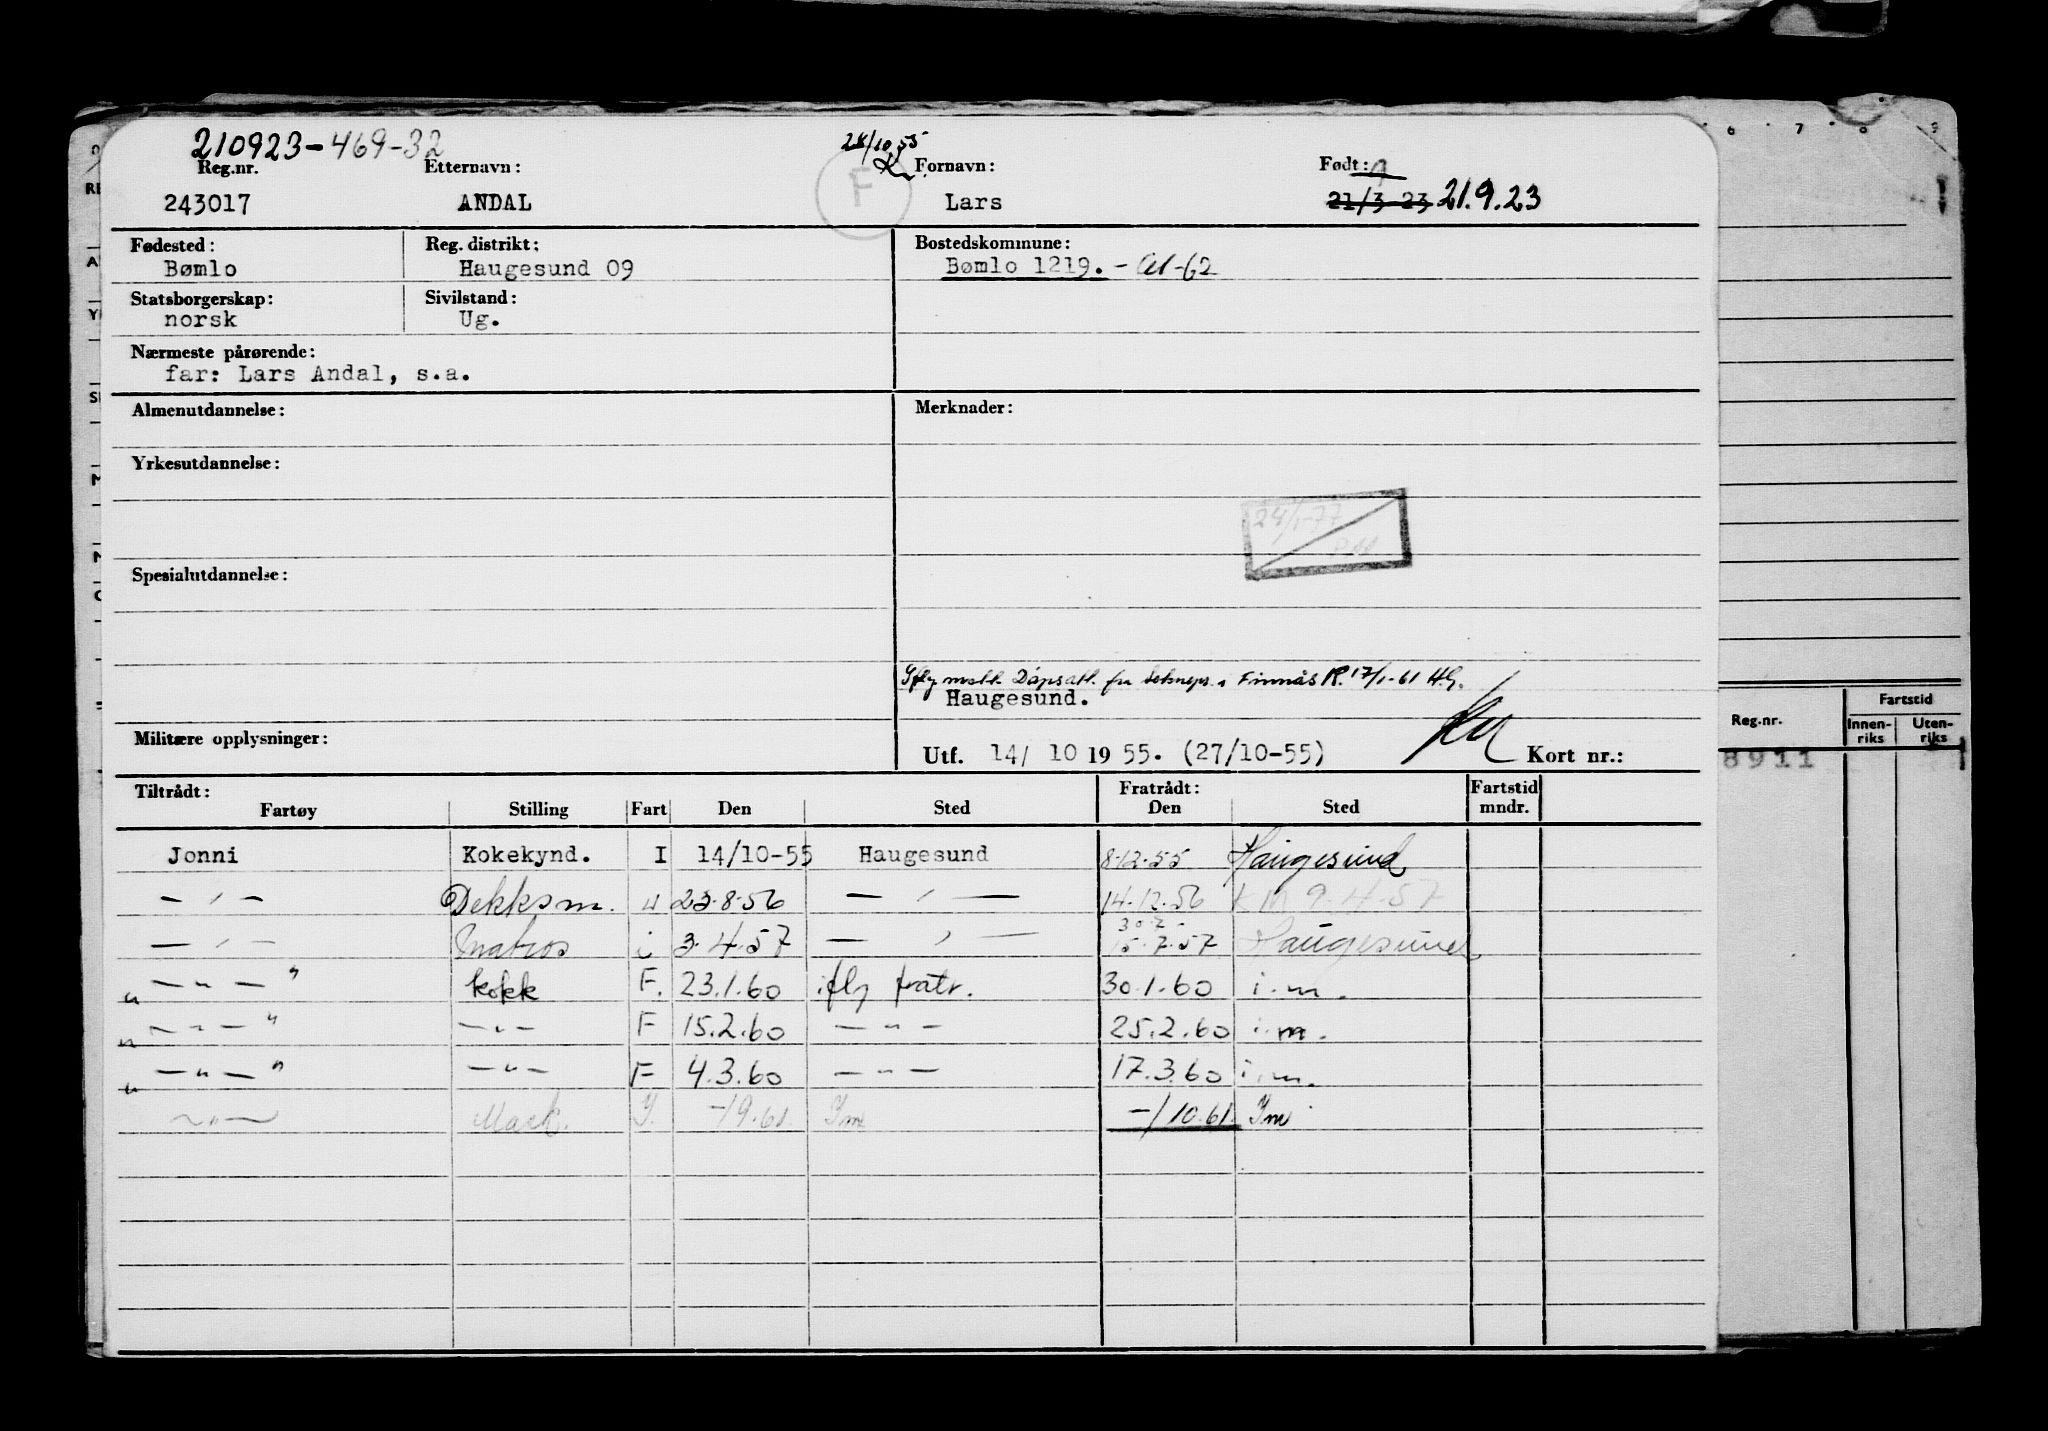 210923-469-32
28/10 55
Reg.nr. Etternavn: Fornavn: Født: 9
243017 ANDAL F Lars 21/3-23 21.9.23
Fødested: Reg. distrikt: Bostedskommune:
Bømlo Haugesund 09 Bømlo 1219. -62
Statsborgerskap: Sivilstand:
norsk Ug.
Nærmeste pårørende:
far: Lars Andal, s.a.
Almenutdannelse: Merknader:
Yrkesutdannelse:
24/1-77
Spesialutdannelse:
Iflg Dåpsatt. fra Finnås 17/1-61 H.G.
Haugesund.
Militære opplysninger:
Utf. 14/ 10 1955. (27/10-55) Kort nr.:
Tiltrådt: Fratrådt: Fartstid
Fartøy Stilling Fart Den Sted Den Sted mndr.
Jonni Kokekynd. I 14/10-55 Haugesund 8-12-55 Haugesund
— " — Dekksm. u 23.8.56 — " — 14.12.56 9.4.57
30.7
— " — Matros i 3.4.57 — " — 15.7.57 Haugesund
" — " — " kokk F. 23.1.60 iflg fratr. 30.1.60 i.m.
" — " — " — " — F 15.2.60 — " — 25.2.60 i.m.
" — " — " — " — F 4.3.60 — " — 17.3.60 i.m.
— " — Mask. I. -/9.61 Im -/10.61. Im
6 7 8 9
Reg.nr. Fartstid
Innen-riks Uten-riks
8911